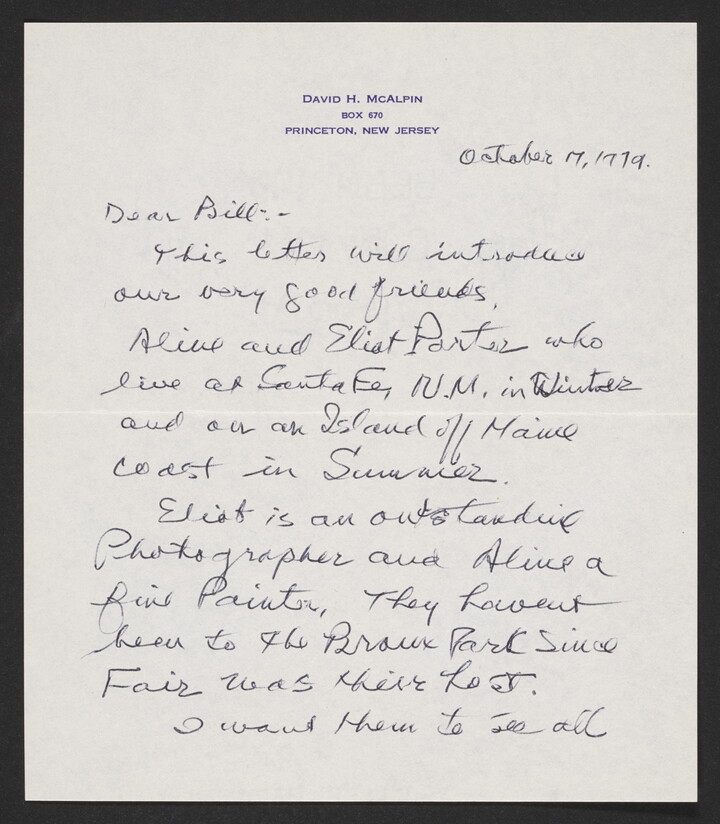 DAVID H. McALPIN
BOX 670
PRINCETON, NEW JERSEY
October 17, 1979.
Dear Bill:-
This letter will introduce
our very good friends,
Aline and Eliot Porter who
live at Santa Fe, N.M. in Winter
and on an Island off Maine
coast in Summer.
Eliot is an outstanding
Photographer and Aline a
fine Painter, They havent
been to the Bronx Park since
Fair was their host.
I want them to see all